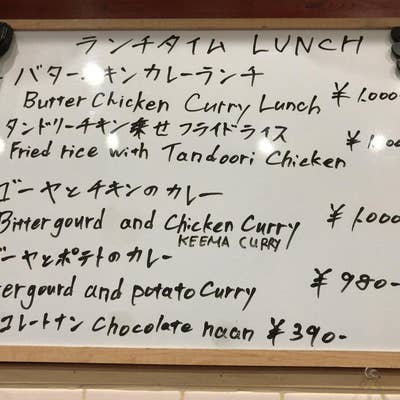 ランチタイム LUNCH
バターチキンカレーランチ
Butter Chicken Curry Lunch ¥1,000-
タンドリーチキン乗せフライドライス
Fried rice with Tandoori Chicken
ゴーヤとチキンのカレー
Bittergourd and Chicken Curry ¥1,000
KEEMA CURRY
ゴーヤとポテトのカレー
tergourd and potato Curry ¥980-
コレートナン Chocolate naan ¥390-